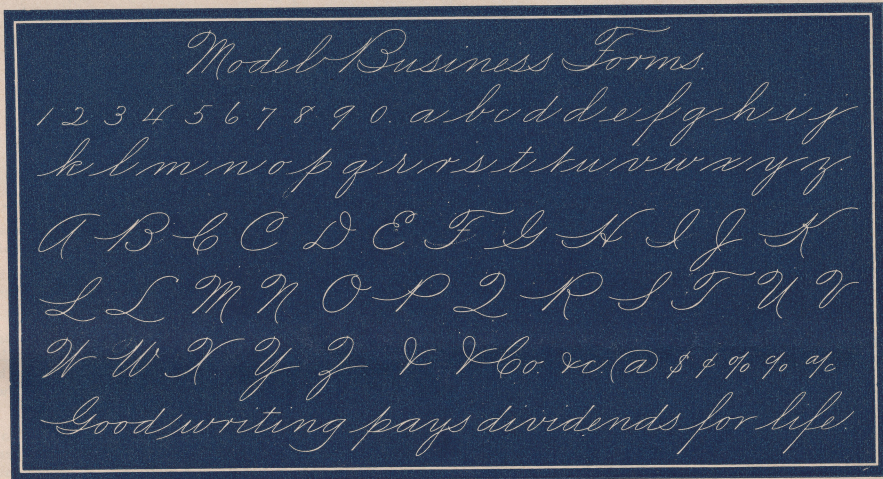 Model Business Forms.
1 2 3 4 5 6 7 8 9 0. a b c d d e f g h i j
k l m n o p q r r s t t u v w x y z.
A B C C D E F G H I J K
L L M N O P Q R S T U V
W W X Y Z & & Co. &c @ $ ¢ % % a/c
Good writing pays dividends for life.